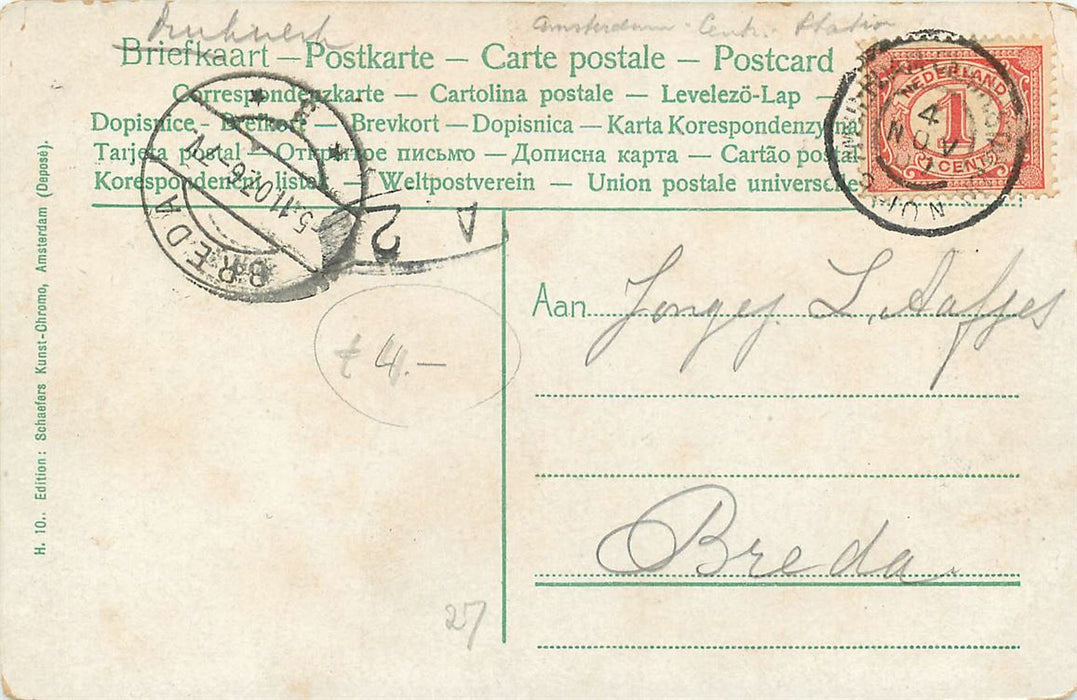 Drukwerk
Amsterdam Centr. Station
Briefkaart — Postkarte — Carte postale — Postcard
Correspondenzkarte — Cartolina postale — Levelező-Lap —
Dopisnice - Brefkort — Brevkort — Dopisnica — Karta Korespondenzyjna
Tarjeta postal — Открытое письмо — Дописна карта — Cartão postal
Korespondenčni listek — Weltpostverein — Union postale universelle
NEDERLAND
1
CENT
BREDA
5.11.07 6-7V
2
A
Aan Jongej. L. Aafjes
Breda
£ 4.-
27
H. 10.. Edition: Schaefers Kunst-Chromo, Amsterdam (Deposé).